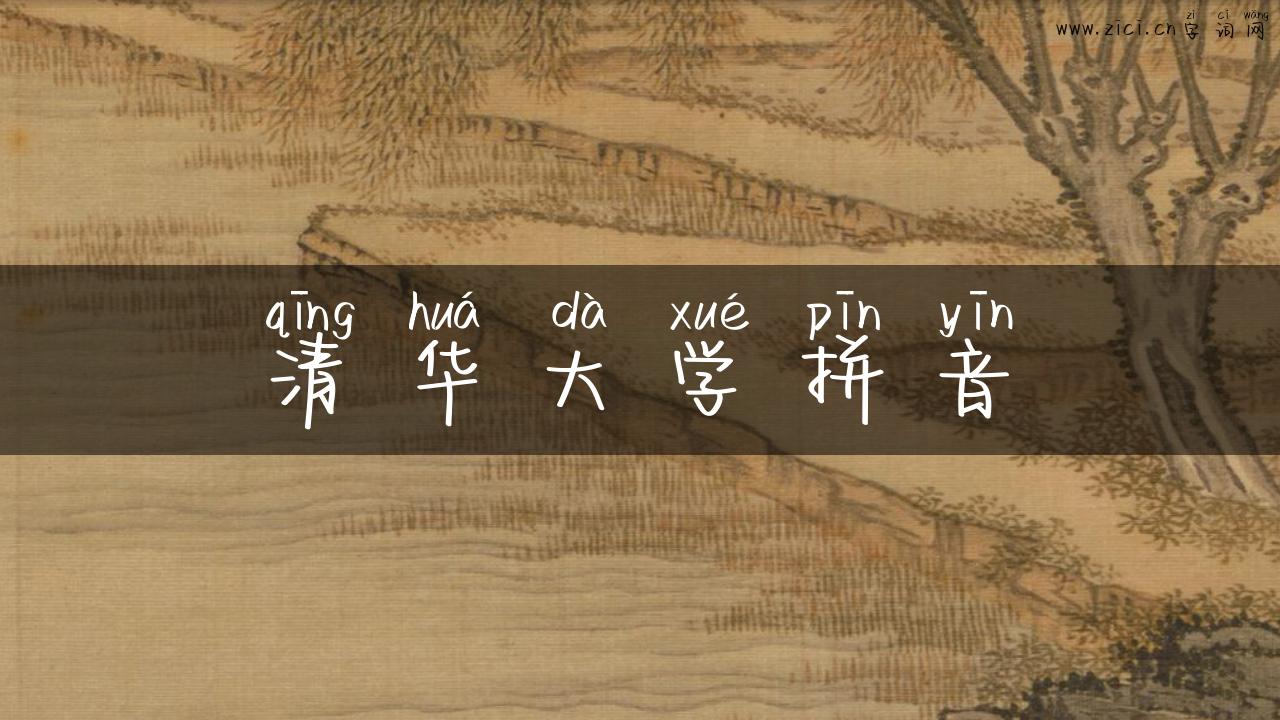 zì cí wǎng
www.zici.cn字词网
qīng huá dà xué pīn yīn
清华大学拼音